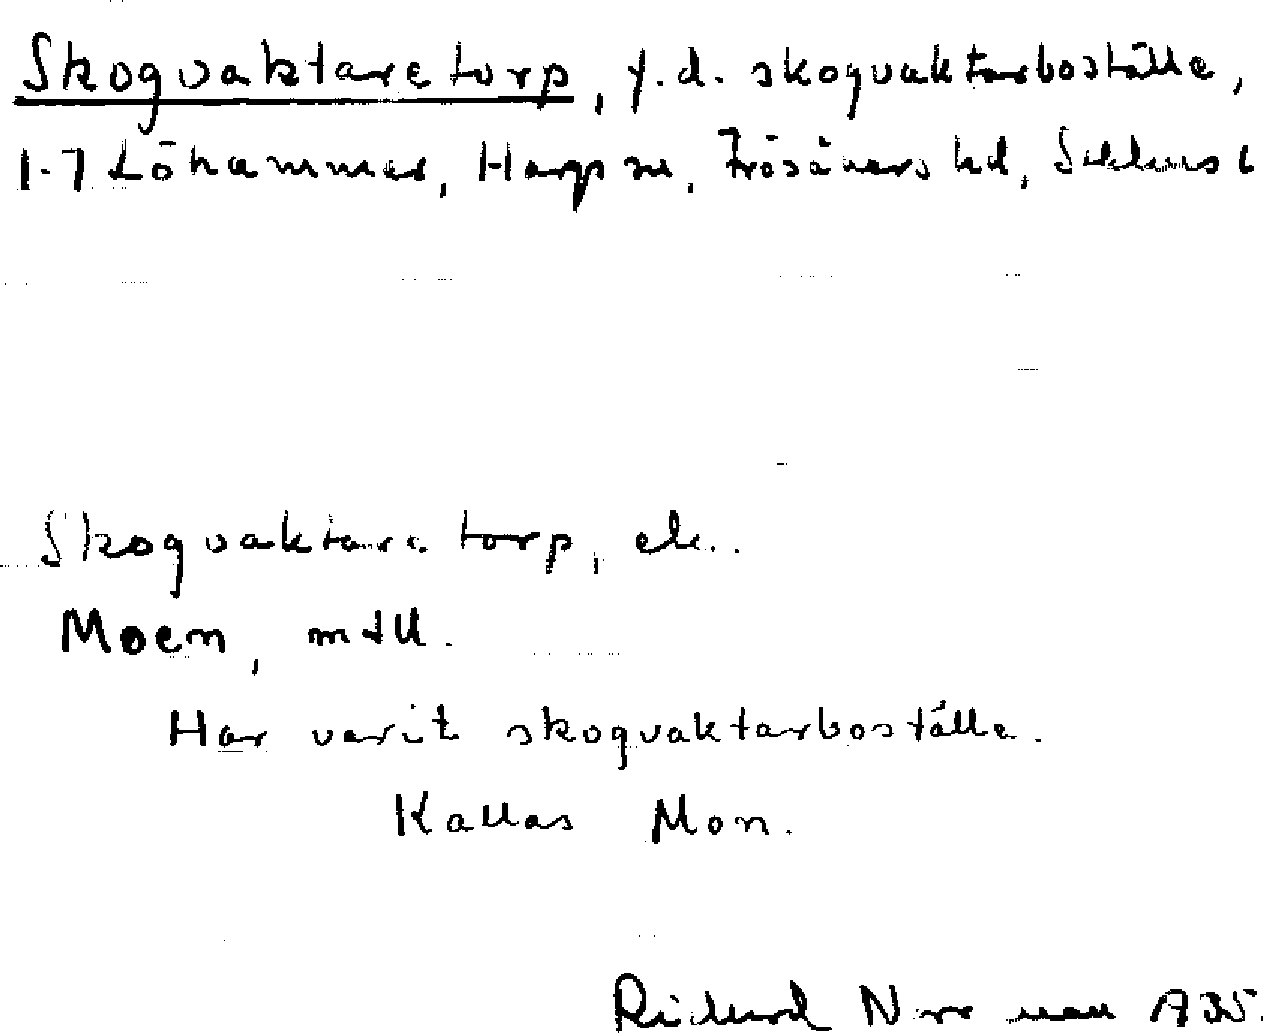 Skogvaktaretorp, f.d. skogvaktarboställe,
1-7 Löhammar, Harg sn, Frösåkers hd,
Skogvaktaretorp, ek..
Moen, mtU.
Har varit skogvaktarboställe.
Kallas Mon.
Rickard Norrman 1935.